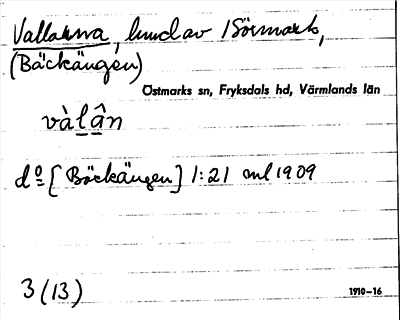 Vallarna, hmd av 1 Sörmark,
(Bäckängen)
Östmarks sn, Fryksdals hd, Värmlands län
vàlân
do [Bäckängen] 1:21 enl 1909
3 (13)
1910–16